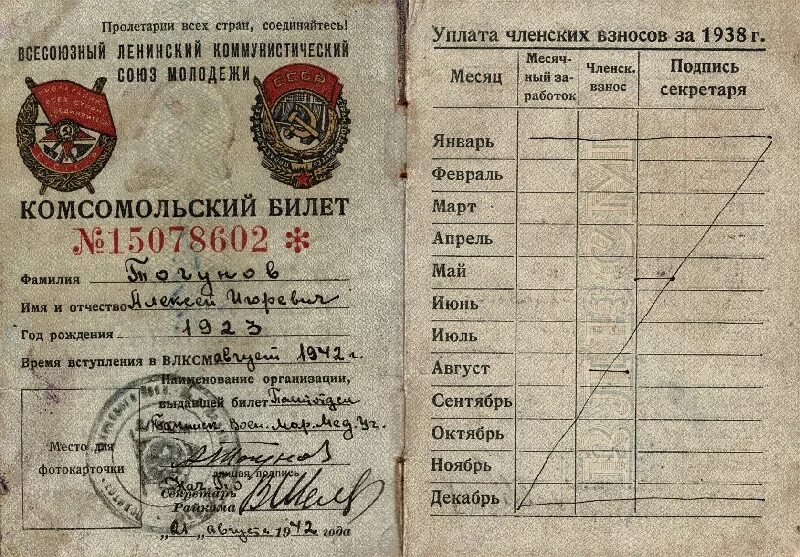 Пролетарии всех стран, соединяйтесь!
ВСЕСОЮЗНЫЙ ЛЕНИНСКИЙ КОММУНИСТИЧЕСКИЙ
СОЮЗ МОЛОДЕЖИ
СССР
КОМСОМОЛЬСКИЙ БИЛЕТ
№15078602 *
Фамилия Тогунов
Имя и отчество Алексей Игоревич
Год рождения 1923
Время вступления в ВЛКСМ август 1942 г.
Наименование организации,
выдавшей билет
Воен. Мор. Мед. Уч.
Место для
фотокарточки
личная подпись
Нач. П/о
Секретарь
Райкома
„21 „ августа 1942 года
Уплата членских взносов за 1938 г.
Месяц Месяч- ный за- работок Членск. взнос Подпись секретаря
Январь
Февраль
Март
Апрель
Май
Июнь
Июль
Август
Сентябрь
Октябрь
Ноябрь
Декабрь